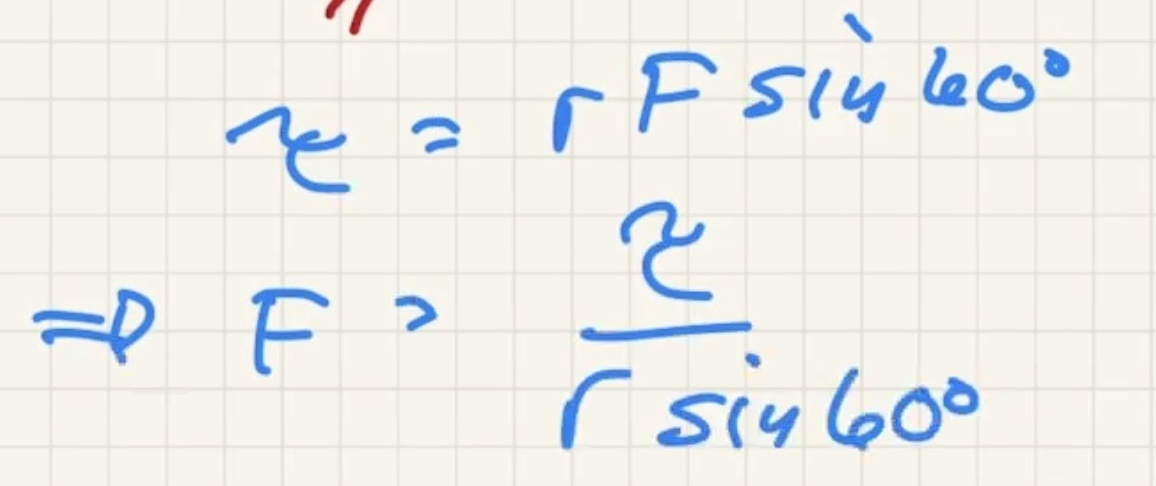 τ = r F sin 60°
⇒ F = τ / (r sin 60°)